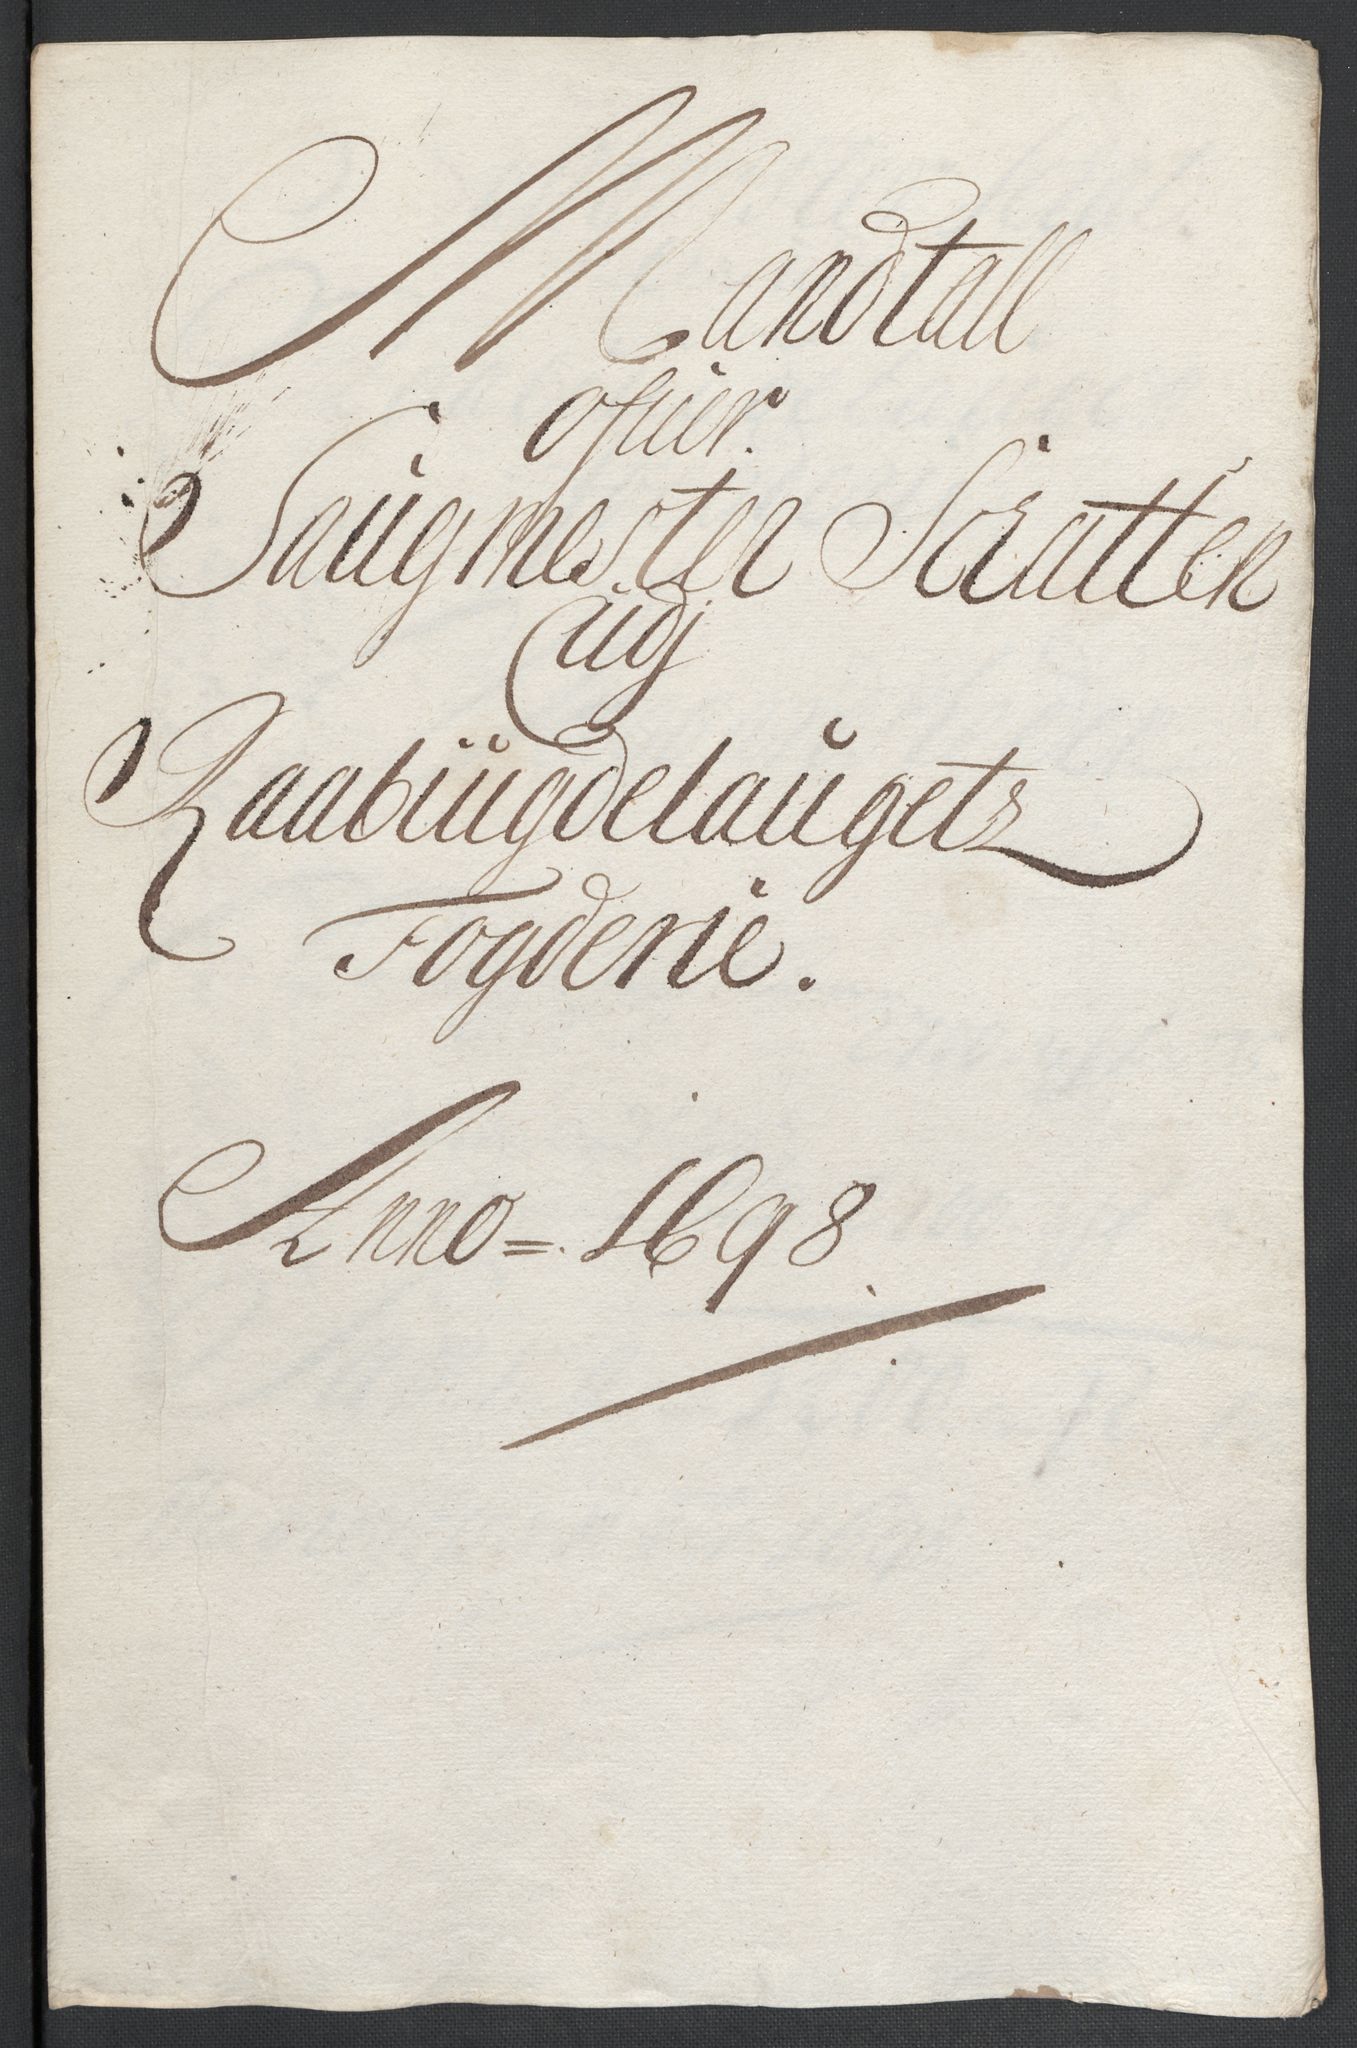 Mandtall
ofuer.
Saugmester Skatten
udj
Raabÿugdelaugets
Fogderie.
Anno =. 1698.